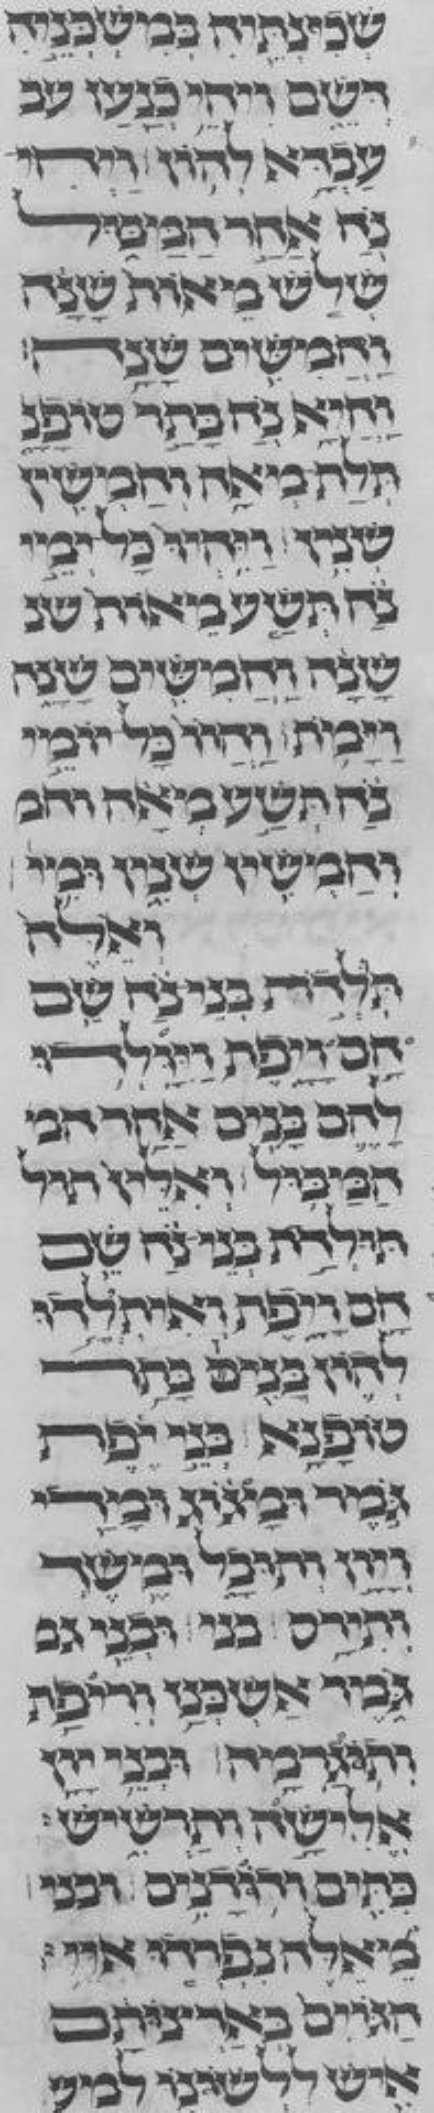 שְׁכִינְתֵּיהּ בְּמִישְׁכְּנֵיהּ
דְּשֵׁם וִיהֵי כְנַעַן עב
עַבְדָּא לְהוֹן׃ וַיְחִי
נֹחַ אַחַר הַמַּבּוּל
שְׁלֹשׁ מֵיאוֹת שָׁנָה
וַחֲמִישִּׁים שָׁנָה׃
וַחֲיָא נֹחַ בָּתַר טוֹפָנָ
תְּלָת מְיאָה וְחַמְישִׁין
שְׁנִין׃ וַיִּהְיוּ כָּל יְמֵי
נֹחַ תְּשַׁע מֵיאוֹת שנ
שָׁנָה וַחֲמִישִּׁים שָׁנָה
וַיָּמֹת׃ וַהֲווֹ כָּל יוֹמֵי
נֹחַ תְּשַׁע מְיאָה וחמ
וְחַמְישִׁין שְׁנִין וּמִית׃
וְאֵלֶּה
תּוֹלְדֹת בְּנֵי נֹחַ שֵׁם
חָם וָיָפֶת וַיִּוָּלְדוּ
לָהֶם בָּנִים אַחַר המ
הַמַּבּוּל׃ וְאִלֵּין תול
תּוּלְדָת בְּנֵי נֹחַ שֵׁם
חָם וָיָפֶת וְאִיתְיְלִדוּ
לְהוֹן בְּנִים בָּתַר
טוֹפָנָא׃ בְּנֵי יֶפֶת
גֹּמֶר וּמָגוֹג וּמָדַי
וְיָוָן וְתוּבָל וּמֶשֶׁךְ
וְתִירָס׃ בני׃ וּבְנֵי גמ
גֹּמֶר אַשְׁכְּנַז וְרִיפַת
וְתוֹגַרְמָה׃ וּבְנֵי יָוָן
אֱלִישָׁה וְתַרְשִׁישׁ׃
כִּתִּים וְדוֹדָנִים׃ ובני׃
מֵיאֵלֶּה נִפְרְדוּ איי׃
הַגּוֹיִם בְּאַרְצוֹתָם
אִישׁ לִלְשׁוֹנוֹ למיש